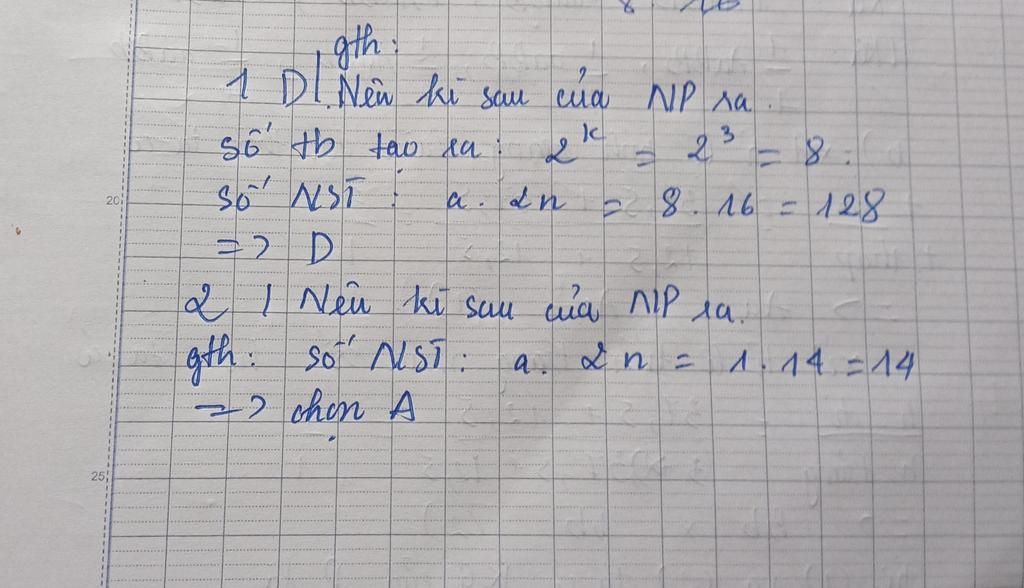 gth:
1 D/. Nêu kì sau của NP xa.
số tb tạo ra: 2^k = 2^3 = 8.
20
số NST: a. 2n = 8. 16 = 128
=> D
2 / Nêu kì sau của NP xa.
gth: số NST: a. 2n = 1. 14 = 14
=> chọn A
25